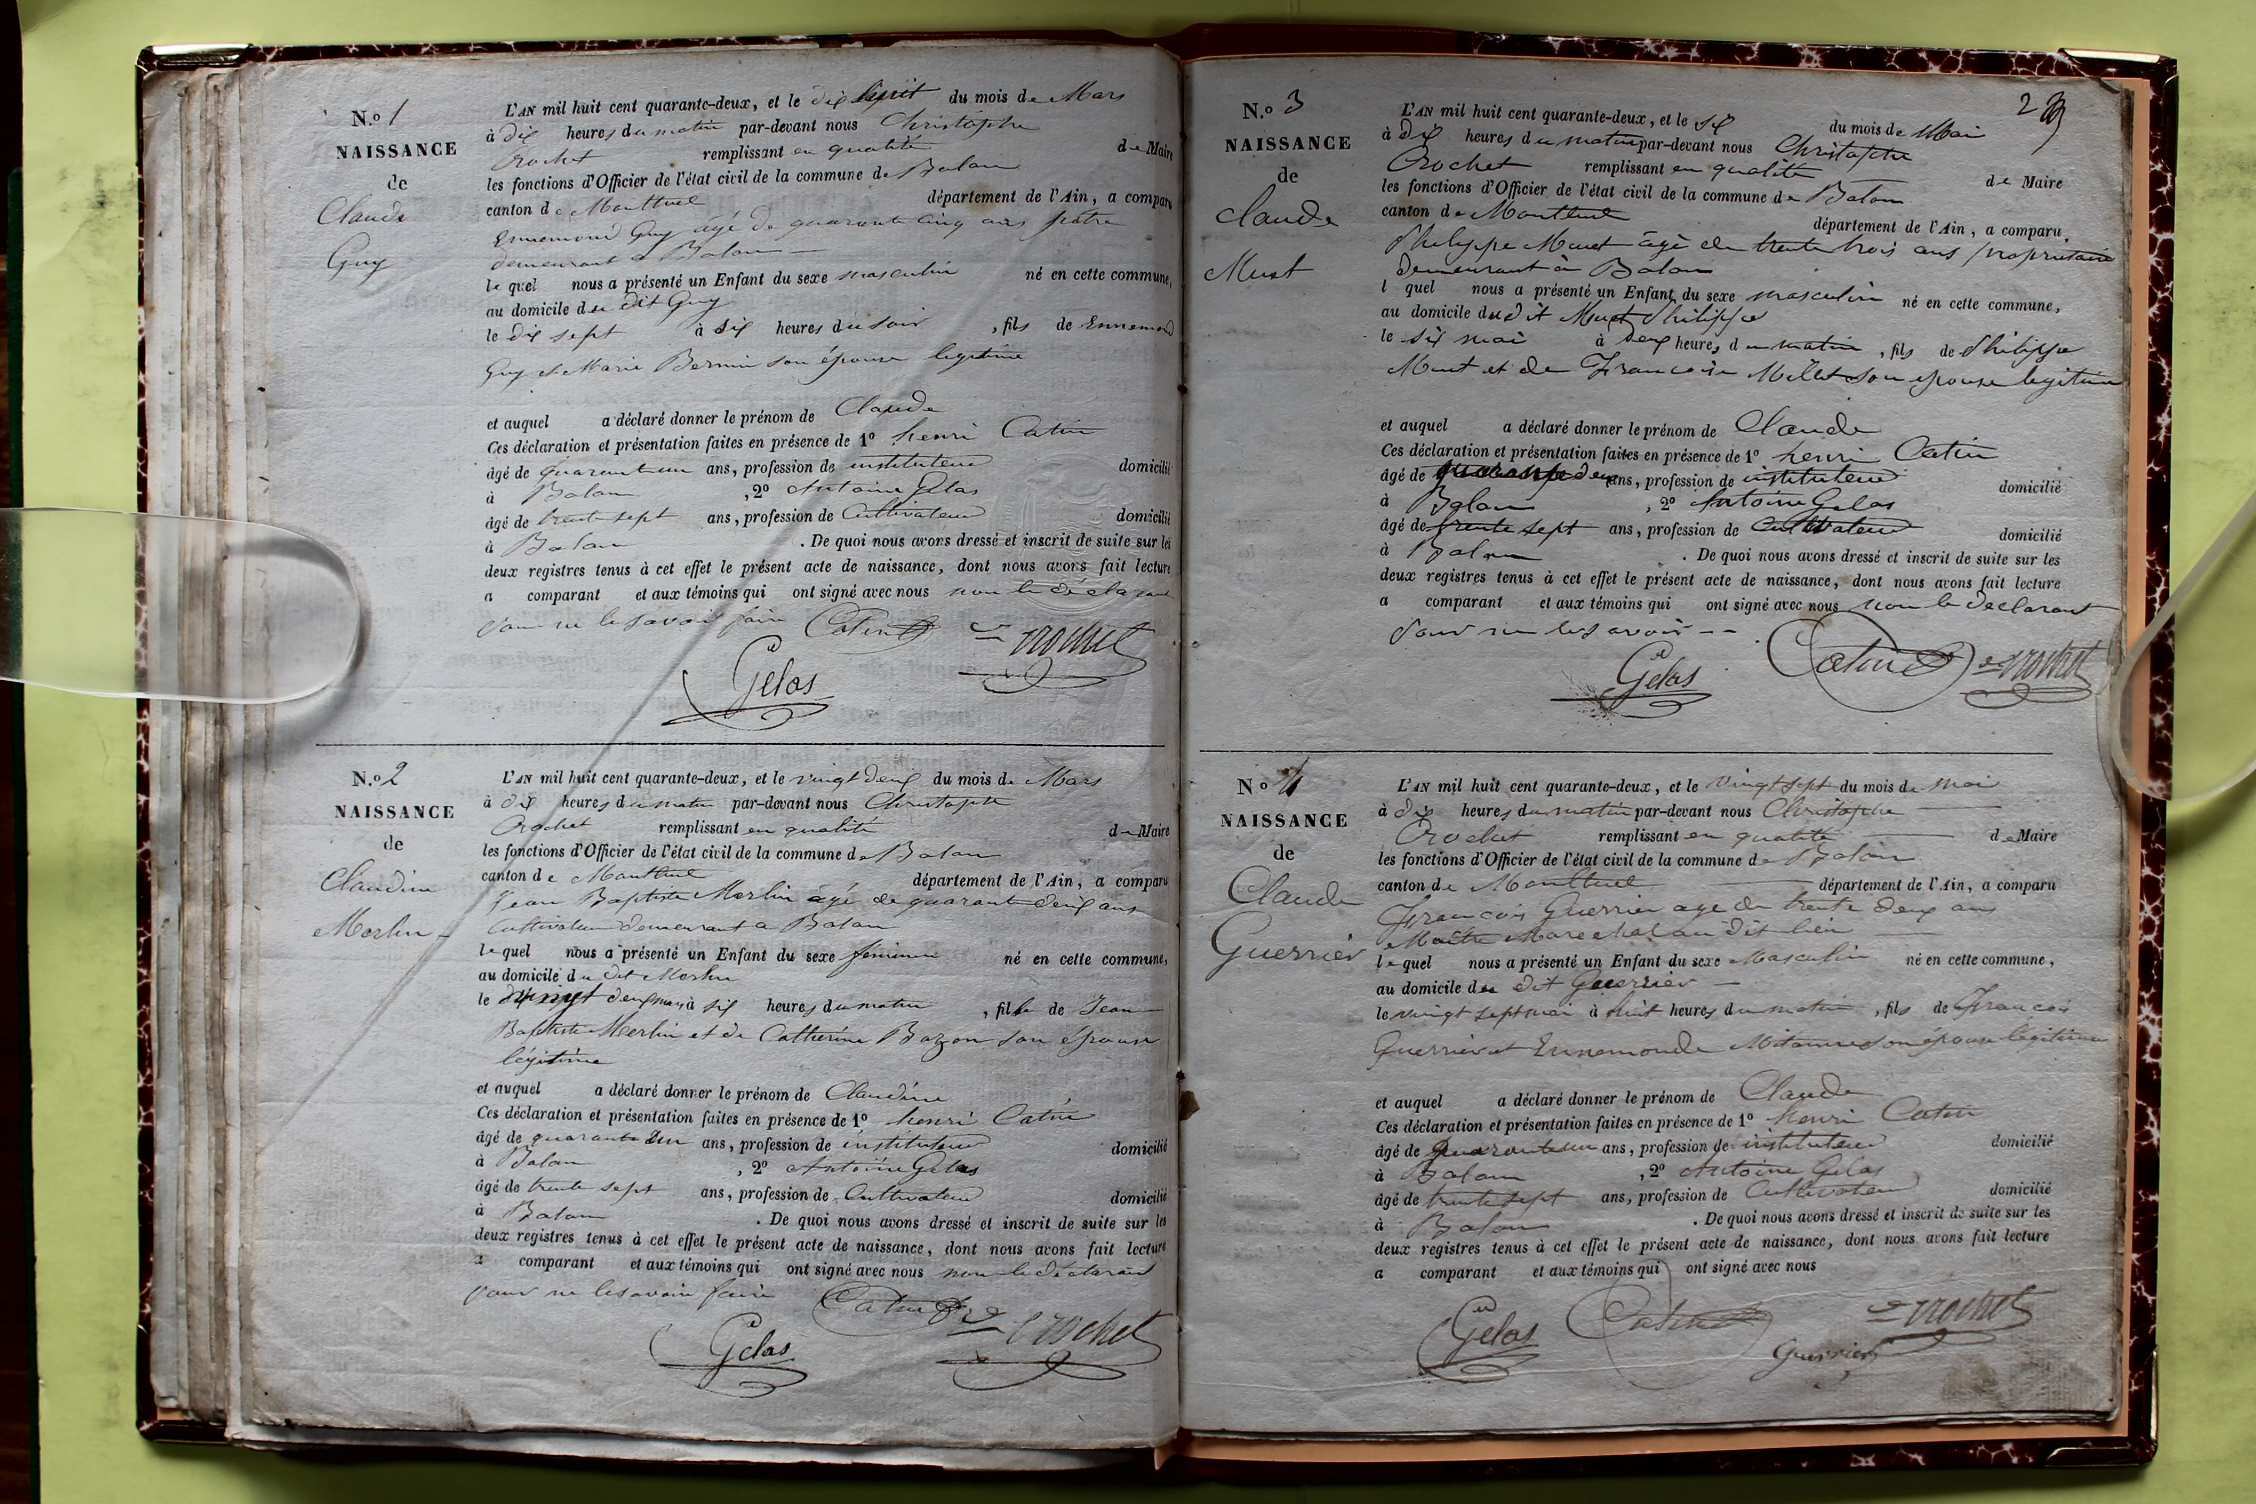 N.º 1
NAISSANCE
de
Claude
Guy
L'AN mil huit cent quarante-deux, et le dix huit du mois de Mars
à dix heures du matin par-devant nous Christophe
Crochet remplissant en qualité de Maire
les fonctions d'Officier de l'état civil de la commune de Balan
canton de Montluel département de l'Ain, a comparu
Ennemond Guy âgé de quarante cinq ans
demeurant a Balan
lequel nous a présenté un Enfant du sexe masculin né en cette commune,
au domicile du dit Guy
le dix sept à six heures du soir, fils de Ennemond
Guy et Marie Bernin son épouse légitime
et auquel a déclaré donner le prénom de Claude
Ces déclaration et présentation faites en présence de 1º henri Catin
âgé de quarant un ans, profession de instituteur domicilié
à Balan, 2º Antoine Gelas
âgé de trente sept ans, profession de Cultivateur domicilié
à Balan. De quoi nous avons dressé et inscrit de suite sur les
deux registres tenus à cet effet le présent acte de naissance, dont nous avons fait lecture
a comparant et aux témoins qui ont signé avec nous non le déclarant
pour ne le savoir faire Catin Crochet
Gelas
N.º 2
NAISSANCE
de
Claudine
Merlin
L'AN mil huit cent quarante-deux, et le vingt deux du mois de Mars
à dix heures du matin par-devant nous Christophe
Crochet remplissant en qualité de Maire
les fonctions d'Officier de l'état civil de la commune de Balan
canton de Montluel département de l'Ain, a comparu
Jean Baptiste Merlin âgé de quarante deux ans
Cultivateur demeurant a Balan
lequel nous a présenté un Enfant du sexe féminin né en cette commune,
au domicile du dit Merlin
le vingt deux mars à six heures du matin, fille de Jean
Baptiste Merlin et de Catherine Bozon son épouse
légitime
et auquel a déclaré donner le prénom de Claudine
Ces déclaration et présentation faites en présence de 1º henri Catin
âgé de quarante un ans, profession de instituteur domicilié
à Balan, 2º Antoine Gelas
âgé de trente sept ans, profession de Cultivateur domicilié
à Balan. De quoi nous avons dressé et inscrit de suite sur les
deux registres tenus à cet effet le présent acte de naissance, dont nous avons fait lecture
a comparant et aux témoins qui ont signé avec nous non le déclarant
pour ne le savoir faire Catin Crochet
Gelas
N.º 3
NAISSANCE
de
Claude
Muet
L'AN mil huit cent quarante-deux, et le six du mois de Mai
à dix heures du matin par-devant nous Christophe
Crochet remplissant en qualité de Maire
les fonctions d'Officier de l'état civil de la commune de Balan
canton de Montluel département de l'Ain, a comparu
Philippe Muet âgé de trente trois ans propriétaire
demeurant à Balan
l quel nous a présenté un Enfant du sexe masculin né en cette commune,
au domicile du dit Muet Philippe
le six mai à deux heures du matin, fils de Philippe
Muet et de Francoise Millet son epouse legitime
et auquel a déclaré donner le prénom de Claude
Ces déclaration et présentation faites en présence de 1º henri Catin
âgé de quarante deux ans, profession de instituteur domicilié
à Balan, 2º Antoine Gelas
âgé de trente sept ans, profession de Cultivateur domicilié
à Balan. De quoi nous avons dressé et inscrit de suite sur les
deux registres tenus à cet effet le présent acte de naissance, dont nous avons fait lecture
a comparant et aux témoins qui ont signé avec nous non le declarant
pour ne le savoir
Gelas Catin Crochet
Nº 4
NAISSANCE
de
Claude
Guerrier
L'AN mil huit cent quarante-deux, et le vingt sept du mois de mai
à dix heures du matin par-devant nous Christophe
Crochet remplissant en qualité de Maire
les fonctions d'Officier de l'état civil de la commune de Balan
canton de Montluel département de l'Ain, a comparu
François Guerrier age de trente deux ans
Maître Marechal au dit lieu
lequel nous a présenté un Enfant du sexe Masculin né en cette commune,
au domicile du dit Guerrier
le vingt sept mai à huit heures du matin, fils de François
Guerrier et Ennemonde son épouse légitime
et auquel a déclaré donner le prénom de Claude
Ces déclaration et présentation faites en présence de 1º henri Catin
âgé de quarante un ans, profession de instituteur domicilié
à Balan, 2º Antoine Gelas
âgé de trente sept ans, profession de Cultivateur domicilié
à Balan. De quoi nous avons dressé et inscrit de suite sur les
deux registres tenus à cet effet le présent acte de naissance, dont nous avons fait lecture
a comparant et aux témoins qui ont signé avec nous
Gelas Catin Crochet
Guerrier